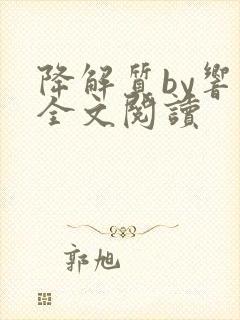 降解質by響
全文閱讀
郭旭